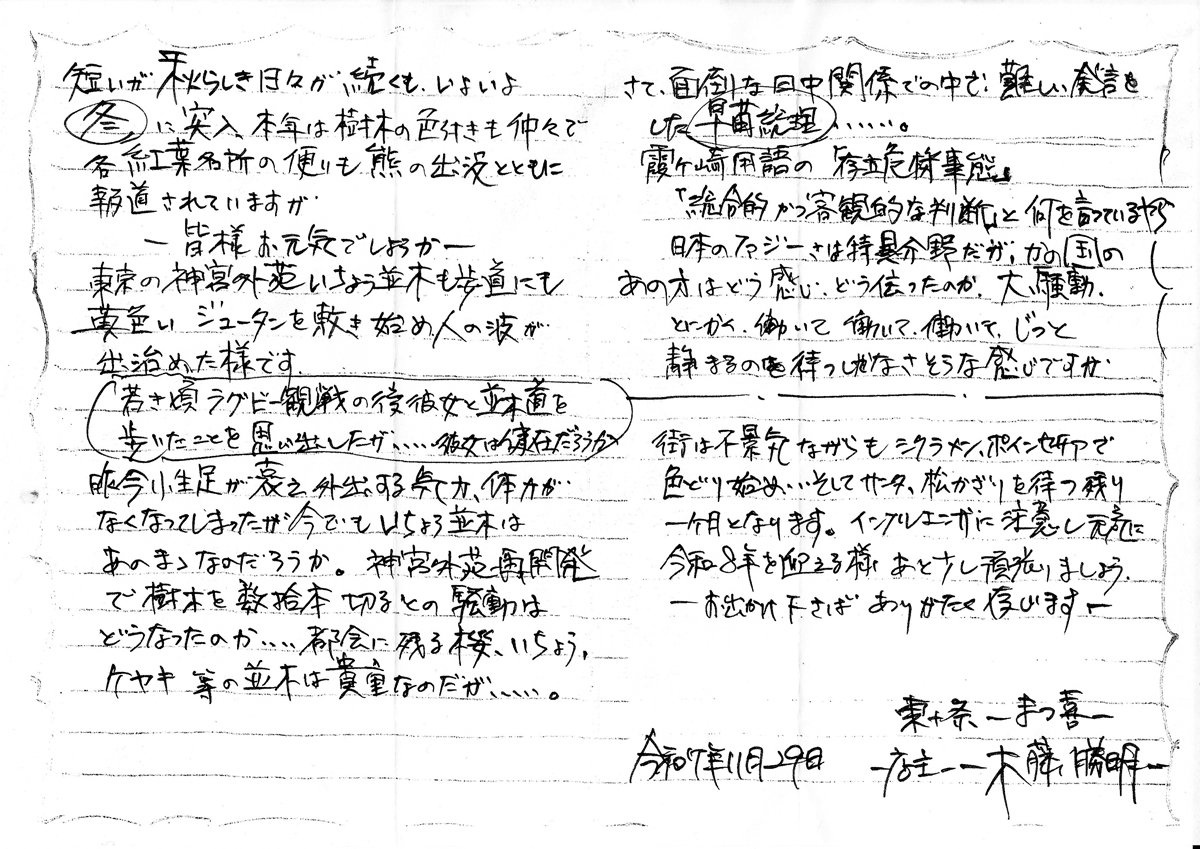 短いが秋らしき日々が続くも、いよいよ
冬に突入、本年は樹木の色付きも仲々で
各紅葉名所の便りも熊の出没とともに
報道されていますが
ー皆様お元気でしょうかー
東京の神宮外苑いちょう並木も歩道にも
黄色いジュータンを敷き始め人の波が
出始めた様です。
若き頃ラグビー観戦の後彼女と並木道を
歩いたことを思い出したが、……彼女は健在だろうか
昨今小生足が衰え外出する気力、体力が
なくなってしまったが今でもいちょう並木は
あのまゝなのだろうか。神宮外苑再開発
で樹木を数拾本切るとの騒動は
どうなったのか‥‥都会に残る桜、いちょう、
ケヤキ等の並木は貴重なのだが、……。
さて、面倒な日中関係での中で、難しい発言を
した早苗総理……。
霞ヶ崎用語の「存立危機事態」
「総合的かつ客観的な判断」と何を言っているやら
日本のファジーさは特異分野だが、かの国の
あの方はどう感じ、どう伝ったのか、大騒動、
とにかく、働いて働いて、働いて、じっと
静まるのを待つしかなさそうな感じですが
街は不景気ながらもシクラメン、ポインセチアで
色どり始め‥そしてサンタ、松かざりを待つ残り
一ヶ月となります。インフルエンザに注意し元気に
令和8年を迎える様あと少し頑張りましょう。
ーお出かけ下さればありがたく存じますー
東十条 ーまつ喜ー
令和7年11月29日 ー店主ー 木藤勝明ー